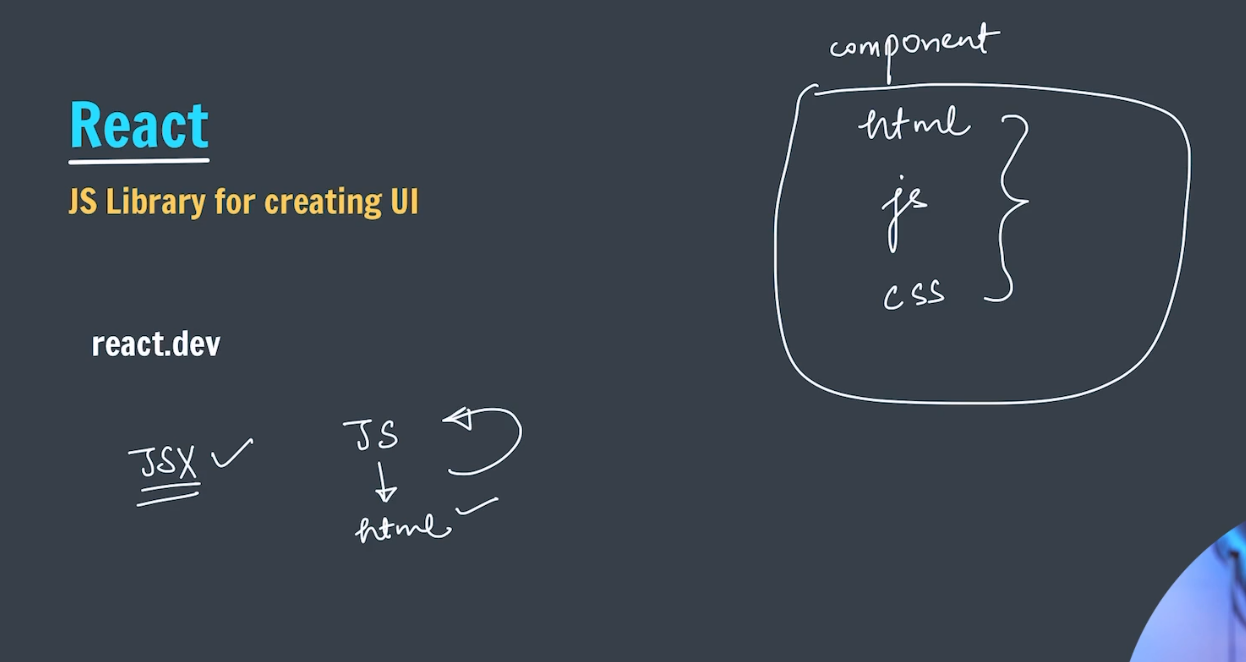 React
JS Library for creating UI
react.dev
JSX
JS
html
component
html
js
css